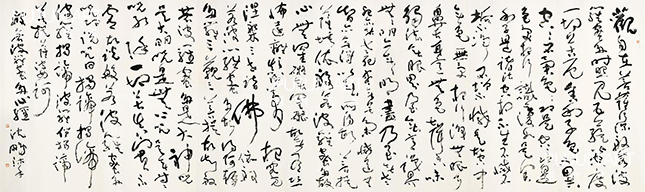 觀自在菩薩行深般若波
羅蜜多時照見五蘊皆空度
一切苦厄舍利子色不異
空空不異色色即是空空即是
色受想行識亦復如是舍
利子是諸法空相不生不滅不
垢不淨不增不減是故空中
無色無受想行識無眼耳
鼻舌身意無色聲香味
觸法無眼界乃至無意識界
無無明亦無無明盡乃至無
老死亦無老死盡無苦集滅道無
智亦無得以無所得故菩提
薩埵依般若波羅蜜多故
心無罣礙無罣礙故無有恐
怖遠離顛倒夢想究竟
涅槃三世諸佛依般
若波羅蜜多故得阿耨
多羅三藐三菩提故知般
若波羅蜜多是大神咒
是大明咒是無上咒是無等等
咒能除一切苦真實不
虛故說般若波羅蜜多
咒即說咒曰揭諦揭諦
波羅揭諦波羅僧揭諦
菩提薩婆訶
般若波羅蜜多心經 沈鵬